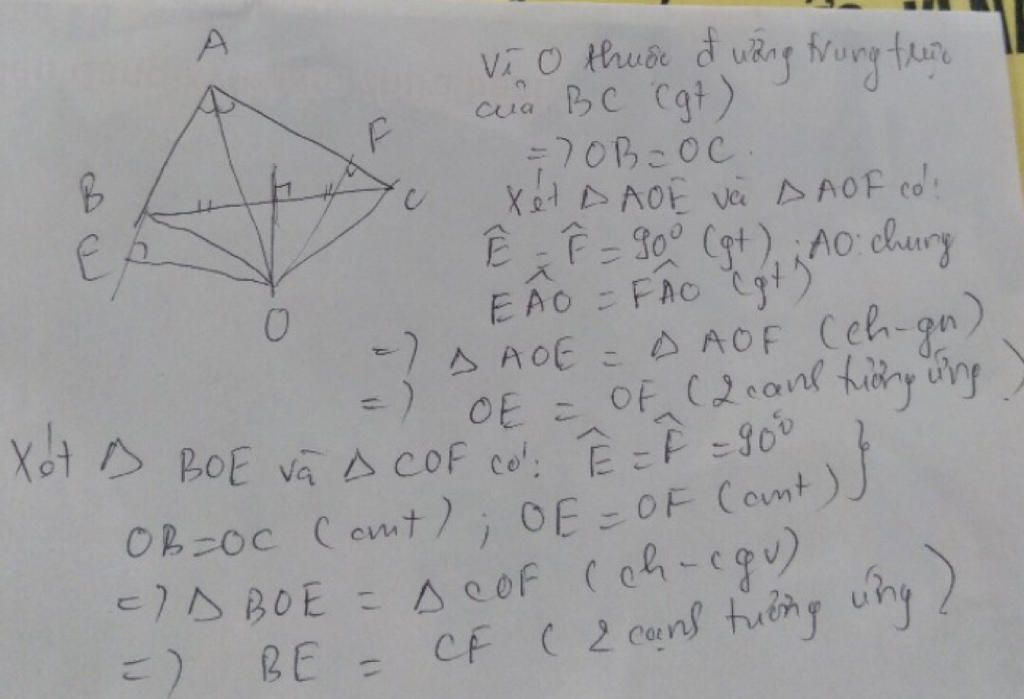 A
B
E
F
C
O
Vì O thuộc đường trung trực
của BC (gt)
=> OB = OC.
Xét △ AOE và △ AOF có:
Ê = F̂ = 90⁰ (gt) ; AO: chung
EÂO = FÂO (gt)
=> △ AOE = △ AOF (ch-gn)
=> OE = OF (2 cạnh tương ứng)
Xét △ BOE và △ COF có: Ê = F̂ = 90⁰ }
OB=OC (cmt) ; OE = OF (cmt)
=> △ BOE = △ COF (ch-cgv)
=> BE = CF (2 cạnh tương ứng)